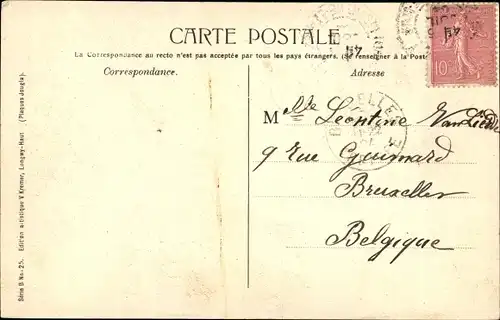 CARTE POSTALE
La Correspondance au recto n'est pas acceptée par tous les pays étrangers. (Se renseigner à la Poste
Correspondance.
Adresse
10
Mlle Leontine Van
9 rue Guimard
Bruxelles
Belgique
Série D No. 25. Edition artistique V Kremer, Longwy-Haut (Plaques Jougla).